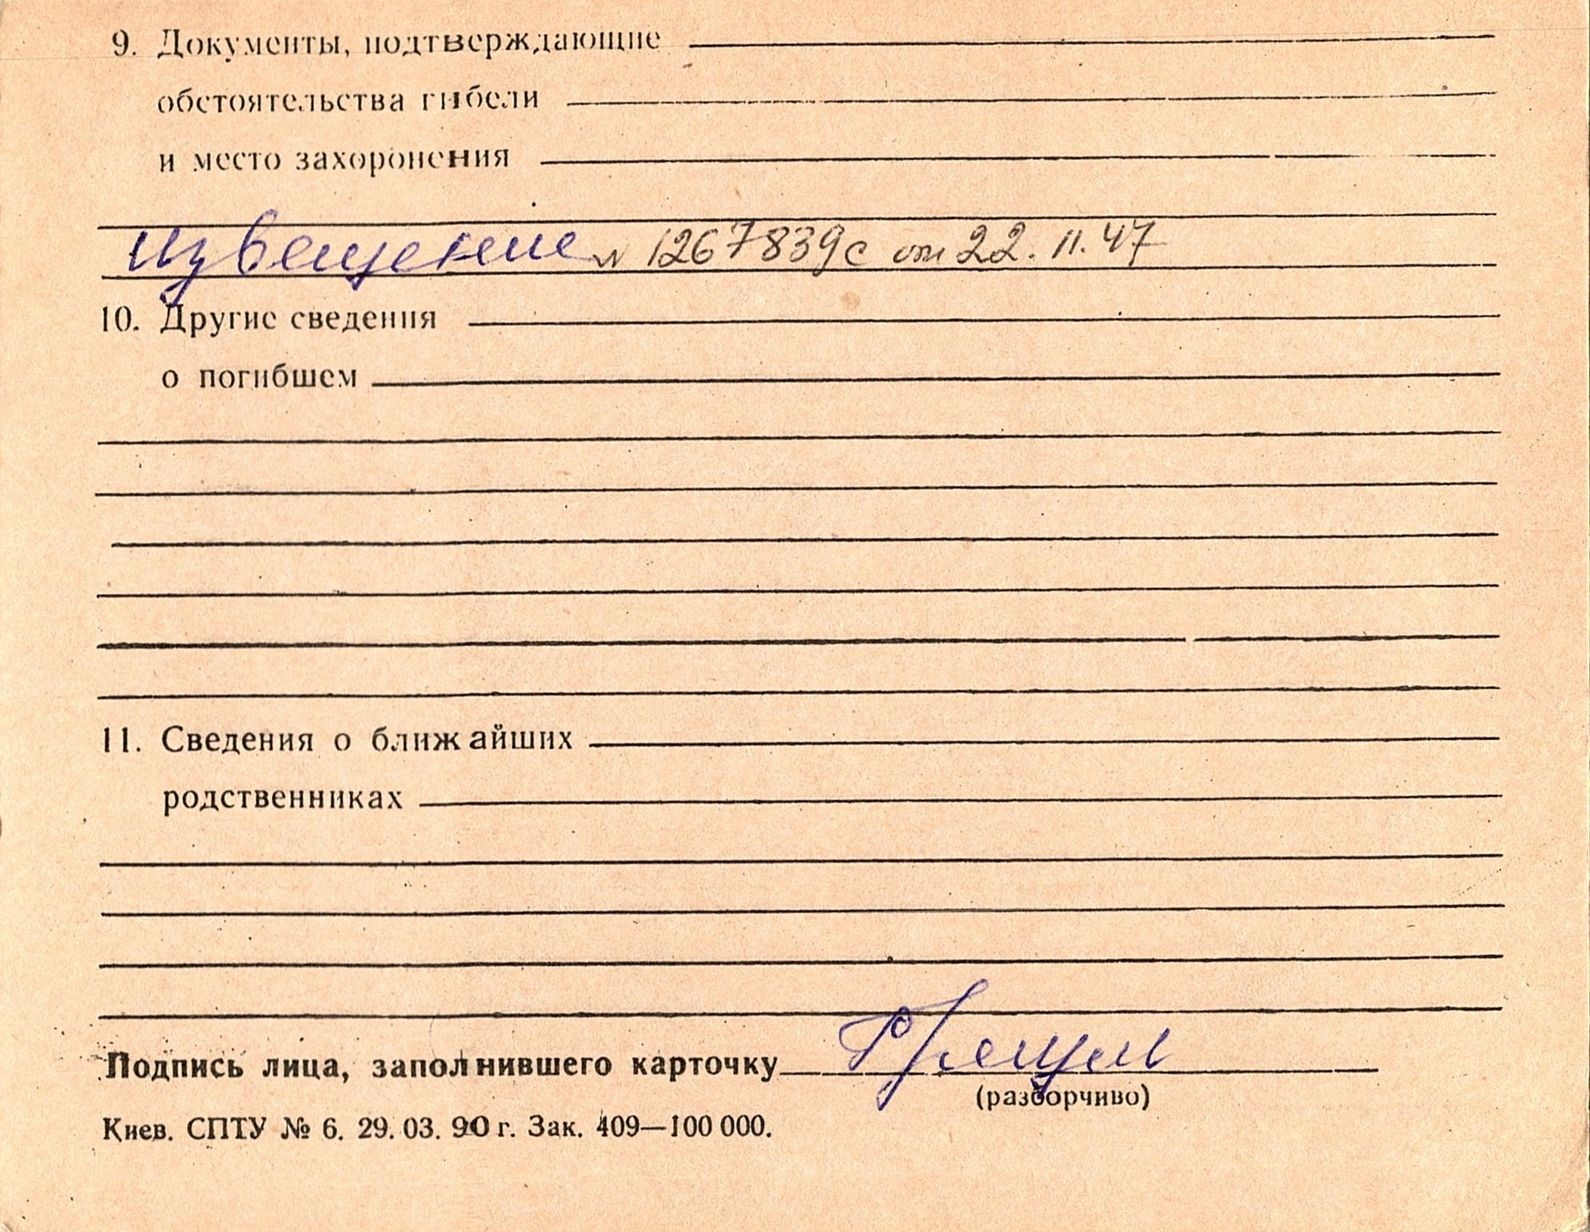 9. Документы, подтверждающие
обстоятельства гибели
и место захоронения
извещение № 1267839с от 22.11.47
10. Другие сведения
о погибшем
11. Сведения о ближайших
родственниках
Подпись лица, заполнившего карточку
(разборчиво)
Киев. СПТУ № 6. 29.03.90 г. Зак. 409—100 000.